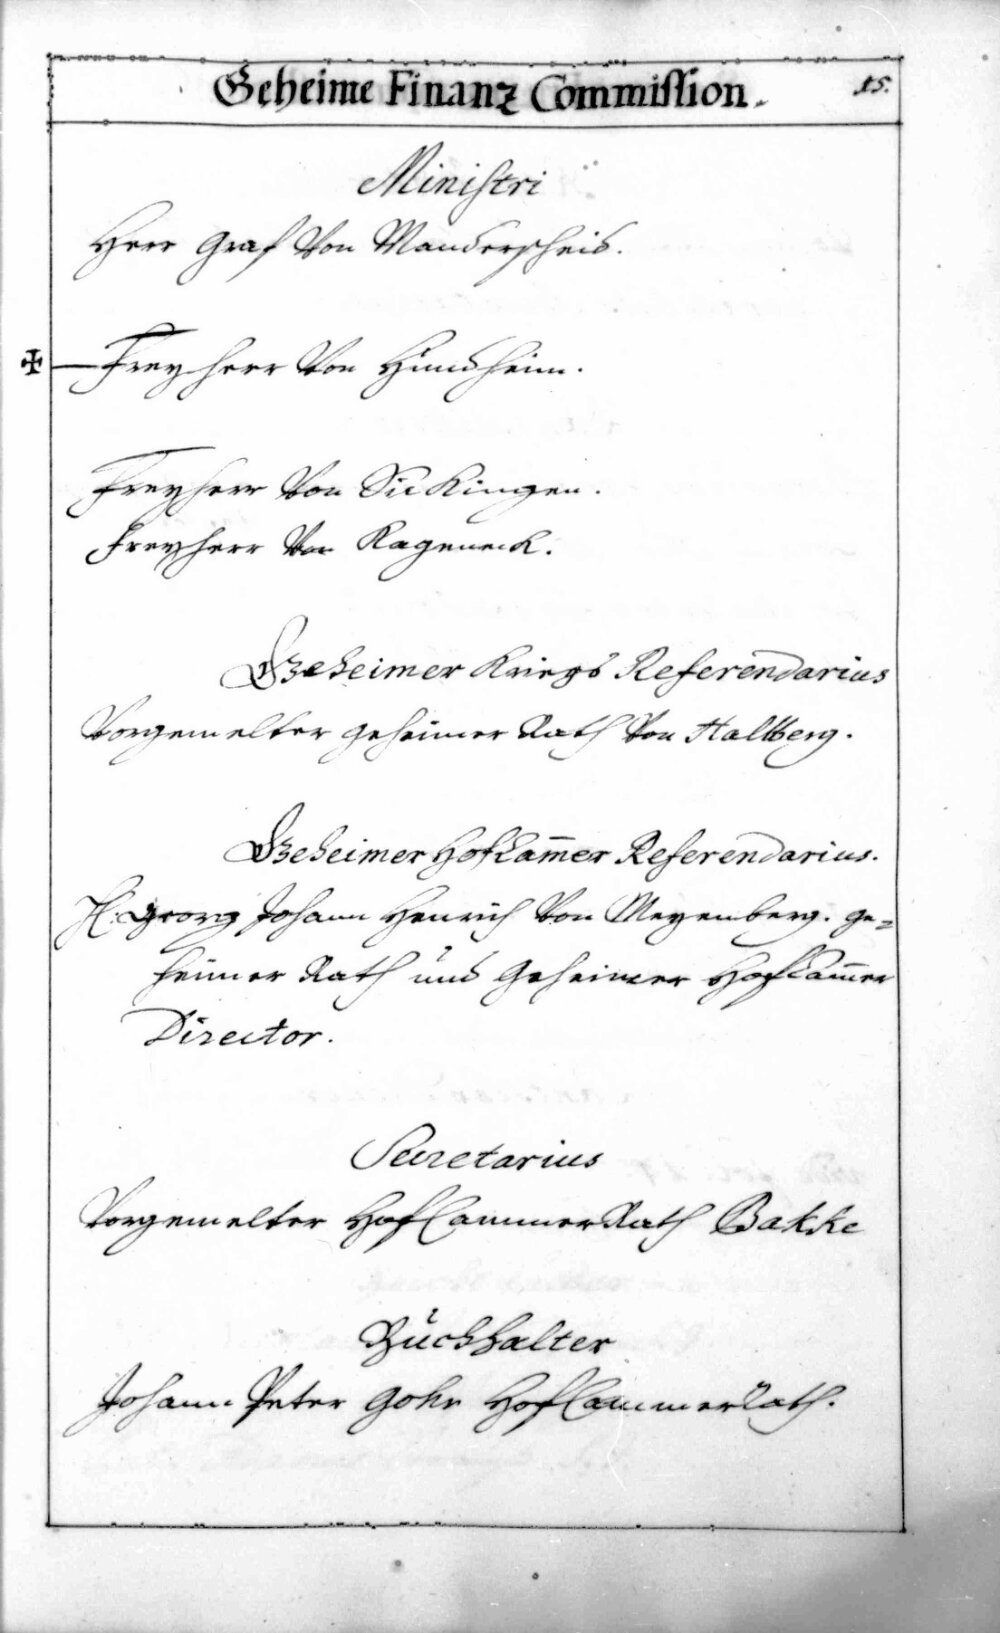 Geheime Finanz Commission.
15.
Ministri
Herr Graf Von Manderscheid.
✠ Freyherr Von Hundheim.
Freyherr Von Sickingen.
Freyherr Von Rageneck.
Geheimer Kriegs Referendarius
Vorgemelter geheimer Rath Von Hallberg.
Geheimer HofCam̅er Referendarius.
H: Georg Johann Henrich Von Meyenberg. ge=
heimer Rath und Geheimer HofCam̅er
Director.
Secretarius
Vorgemelter HofCammerRath Bakke
Buchhalter
Johann Peter Gohr HofCammerRath.